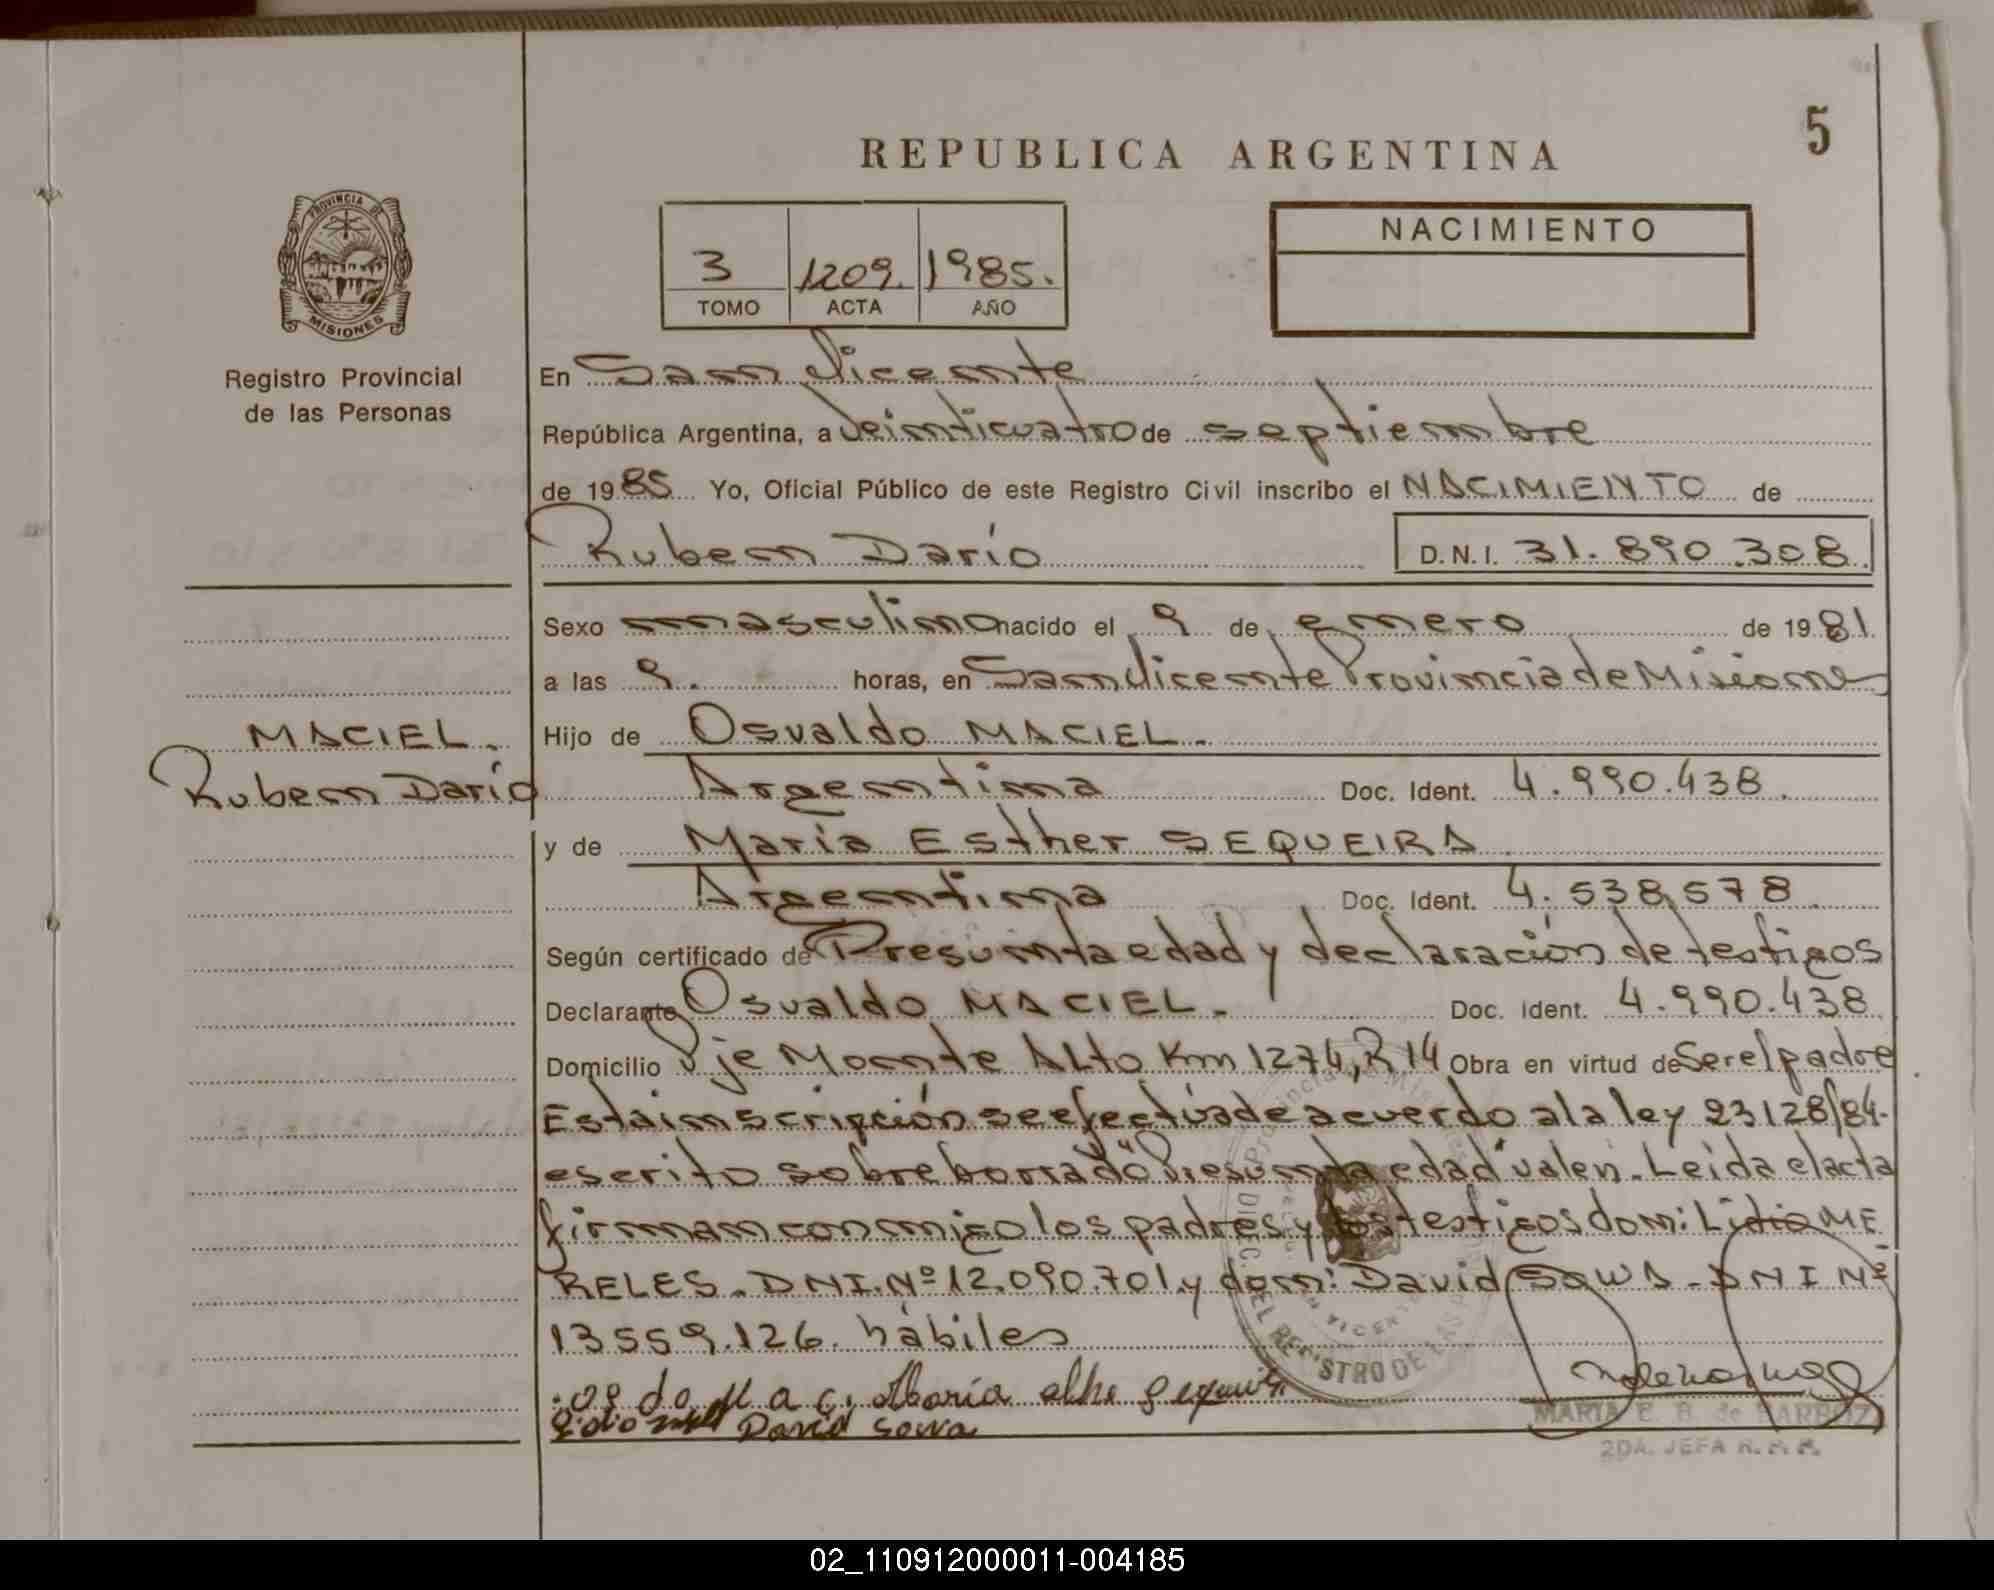 5
REPUBLICA ARGENTINA
PROVINCIA DE
MISIONES
Registro Provincial
de las Personas
3 1209. 1985.
TOMO ACTA AÑO
NACIMIENTO
En San Vicente
República Argentina, a Veinticuatro de septiembre
de 1985 Yo, Oficial Público de este Registro Civil inscribo el NACIMIENTO de
Ruben Darío D.N.I. 31.890.308
Sexo masculino nacido el 9 de enero de 1981
a las 9. horas, en San Vicente Provincia de Misiones
MACIEL.
Ruben Darío
Hijo de Osvaldo MACIEL.
Argentina Doc. Ident. 4.990.438.
y de María Esther SEQUEIRA
Argentina Doc. Ident. 4.538.578
Según certificado de Presunta edad y declaración de testigos
Declarante Osvaldo MACIEL. Doc. Ident. 4.990.438
Domicilio Pje Monte Alto Km 1274, R 14 Obra en virtud de Ser el padre
Esta inscripción se efectúa de acuerdo a la ley 23128/84-
escrito sobre borrado "Presunta edad" valen. Leída el acta
firman conmigo los padres y los testigos don: Lidio ME
RELES. DNI. Nº 12.090.701. y don: David SOWA - DNI Nº
13559.126. hábiles
María
David Sowa
MARIA E. B. de BARBOZ
2DA. JEFA R.P.P.
02_110912000011-004185